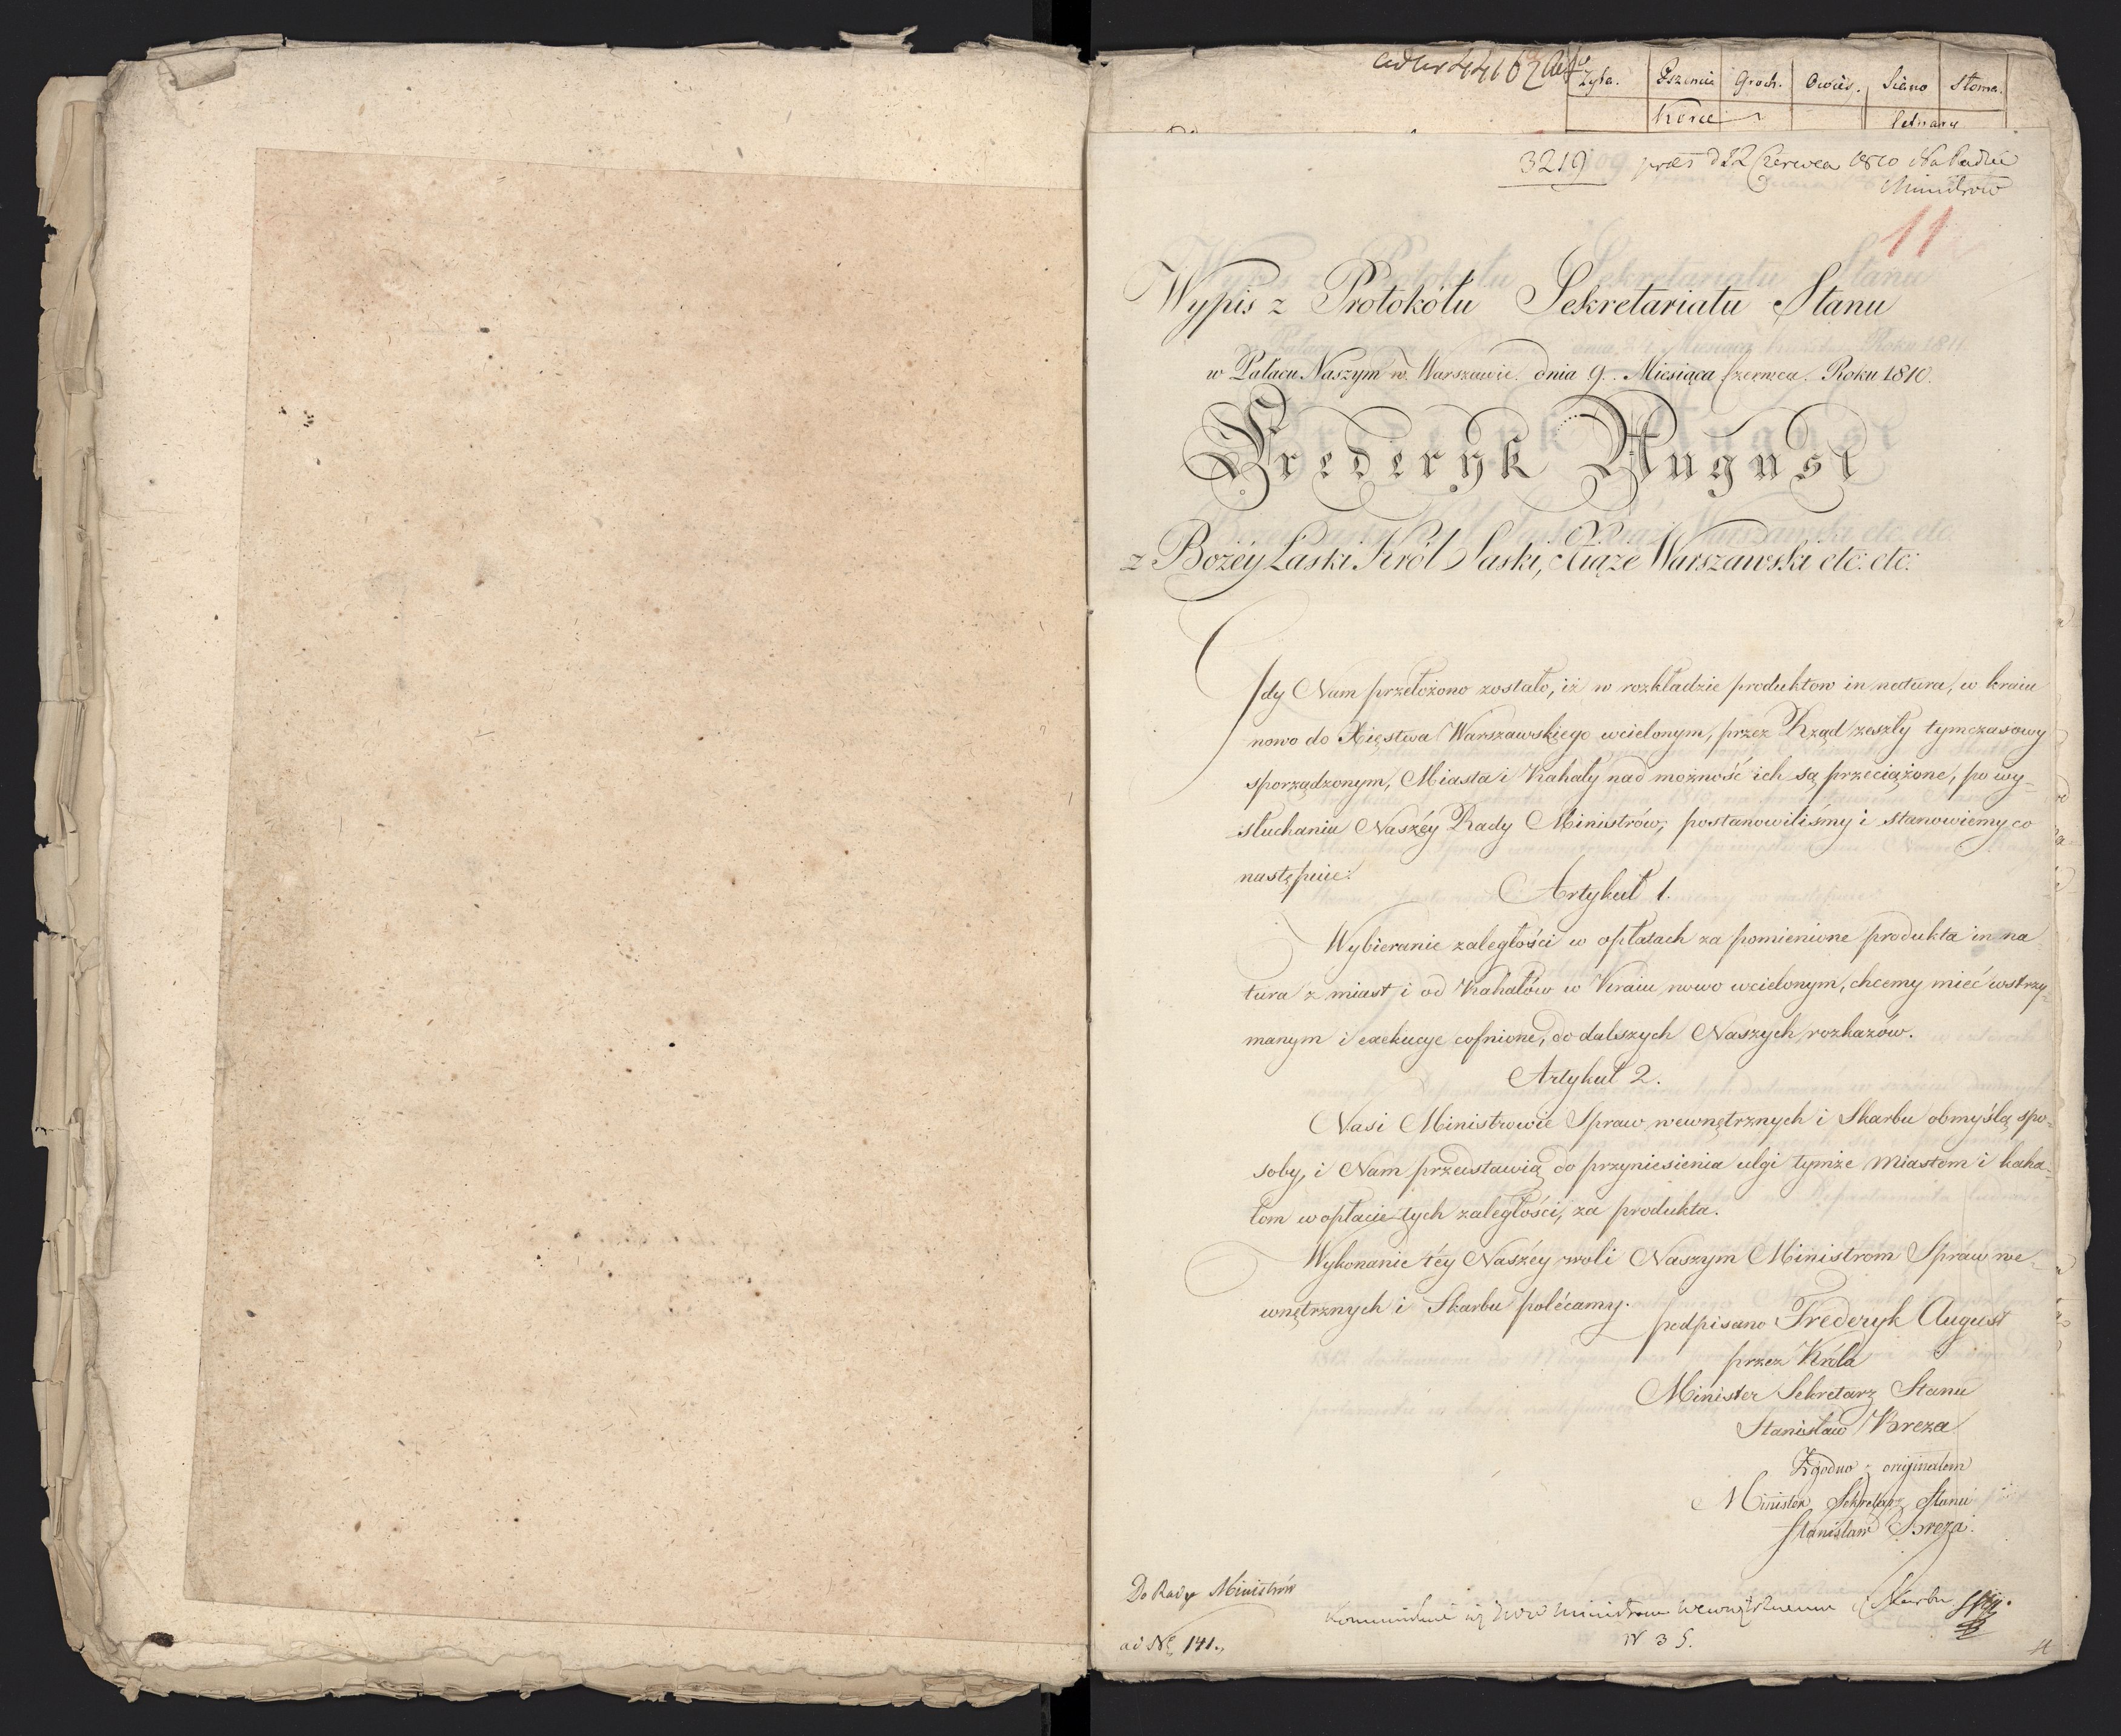 Żyta. Pszenicy Groch. Owies. Siano Słoma.
Korce Cetnary
3219 praes d 12 Czerwca 1810 Na Radzie
Ministrów
11
Wypis z Protokółu Sekretariatu Stanu
w Pałacu Naszym w Warszawie. dnia 9. Miesiąca Czerwca. Roku 1810.
Frederyk August
z Bożéy Łaski Król Saski, Xiąże Warszawski etc: etc:
Gdy Nam przełożono zostało, iż w rozkładzie produktow in natura, w kraiu
nowo do Xięstwa Warszawskiego wcielonym, przez Rząd zeszły tymczasowy
sporządzonym, Miasta i Kahały nad możność ich są przeciążone, po wy-
słuchaniu Naszéy Rady Ministrów, postanowiliśmy i stanowiemy co
następuie:
Artykuł 1.
Wybieranie zaległości w opłatach za pomienione produkta in na
tura z miast i od Kahałów w Kraiu nowo wcielonym, chcemy mieć wstrzy-
manym i exekucye cofnione, do dalszych Naszych rozkazów.
Artykuł 2.
Nasi Ministrowie Spraw wewnętrznych i Skarbu obmyślą spo-
soby, i Nam przedstawią do przyniesienia ulgi tymże Miastom i kaha-
łom w opłacie tych zaległości, za produkta.
Wykonanie téy Naszéy woli Naszym Ministrom Spraw we-
wnętrznych i Skarbu polécamy.
podpisano Frederyk August
przez Króla
Minister Sekretarz Stanu
Stanisław Breza
Zgodno z oryginałem
Minister Sekretarz Stanu
Stanisław Breza.
Do Rady Ministrów
ad No 141.
Ministrom Wewnętrznemu i Skarbu
N 35.